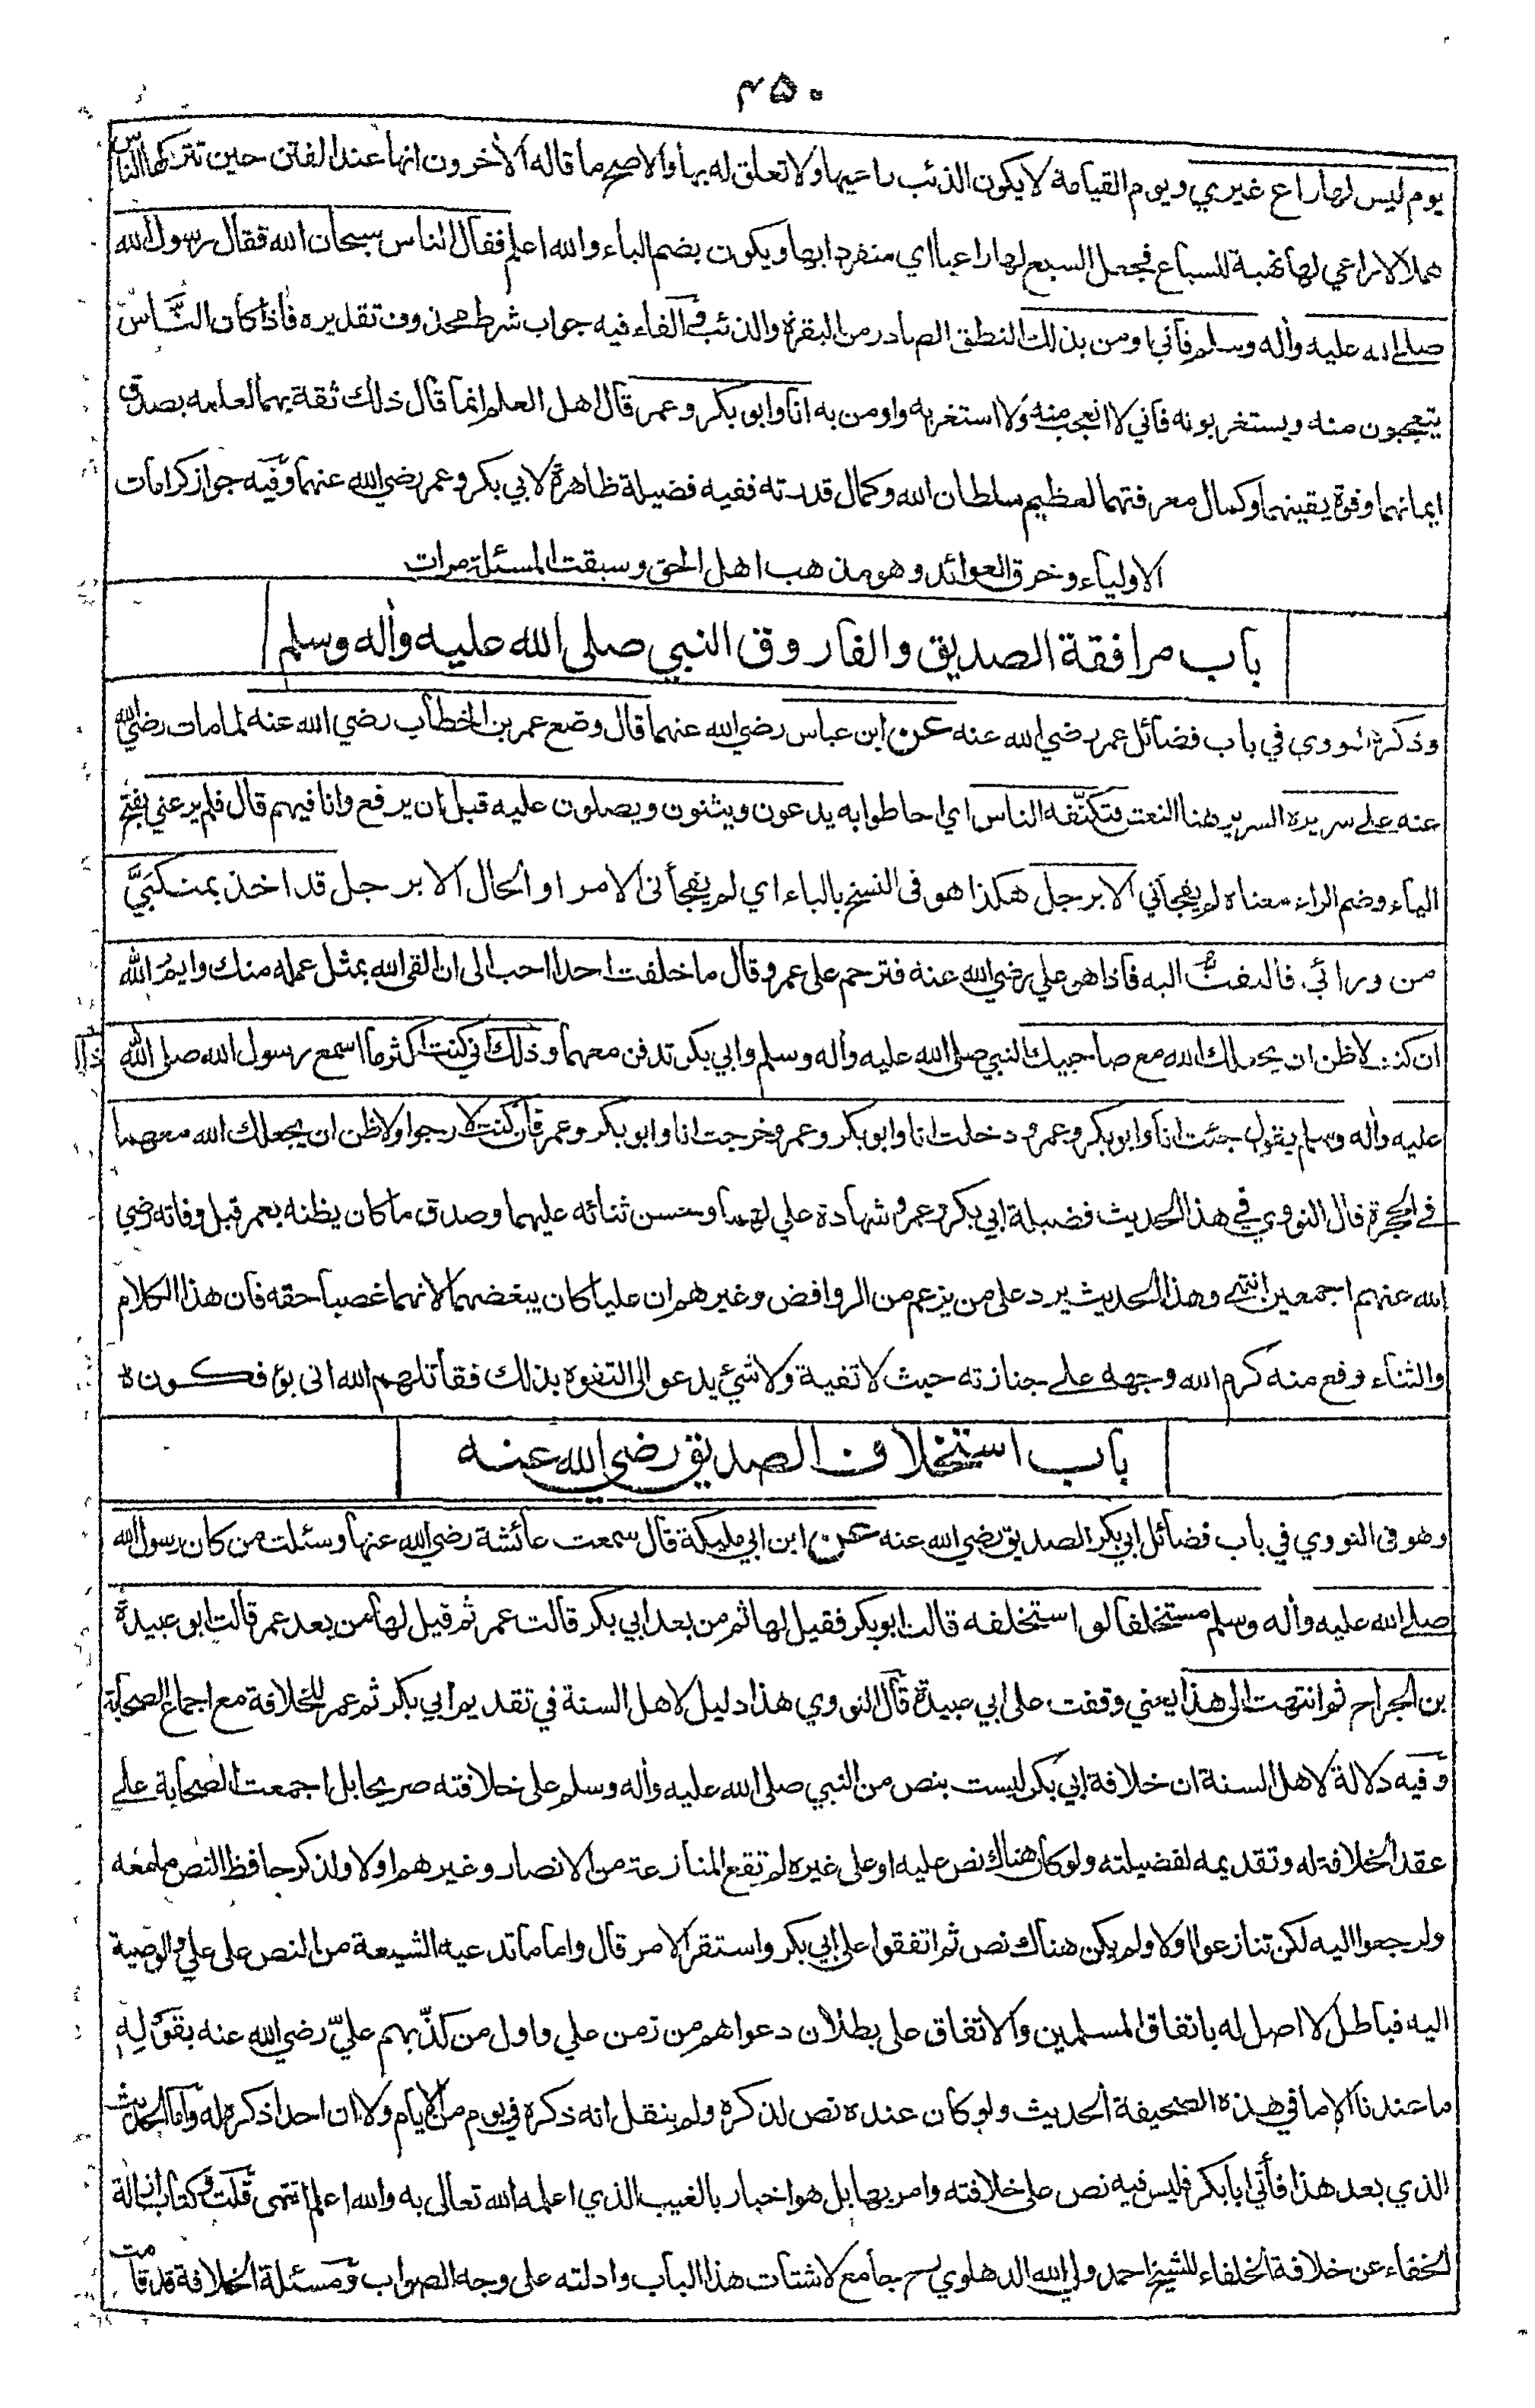 ٤٥٠
يوم ليس لها راع غيري ويوم القيامة لا يكون الذئب راعيها ولا تعلق له بها والاصح ما قاله الأخرون انها عند الفتن حين تتركها الناس
هملا لا راعي لها نهبة للسباع فجعل السبع لها راعيا اي منفردا بها ويكون بضم الباء والله اعلم فقال الناس سبحان الله فقال رسول الله
صلى الله عليه وأله وسلم فأني اومن بذلك النطق الصادر من البقرة والذئب في الفاء فيه جواب شرط محذوف تقديره فأذا كان الناس
يتعجبون منه ويستغربونه فاني لا اتعجب منه ولا استغربه واومن به انا وابو بكر وعمر قال اهل العلم انما قال ذلك ثقة بهما لعلمه بصدق
ايمانهما وقوة يقينهما وكمال معرفتهما لعظيم سلطان الله وكمال قدرته ففيه فضيلة ظاهرة لابي بكر وعمر رضي الله عنهما وفيه جواز كرامات
الاولياء وخرق العوائد وهو مذهب اهل الحق وسبقت المسئلة مرات
باب مرافقة الصديق والفاروق النبي صلى الله عليه وأله وسلم
وذكره النووي في باب فضائل عمر رضي الله عنه عن ابن عباس رضي الله عنهما قال وضع عمر بن الخطاب رضي الله عنه لما مات رضي الله
عنه على سريره السرير هنا النعش فتكنفه الناس اي احاطوا به يدعون ويثنون ويصلون عليه قبل ان يرفع وانا فيهم قال فلم يرعني بفتح
الياء وضم الراء معناه لم يفجأني الا برجل هكذا هو في النسخ بالباء اي لم يفجأني الامر او الحال الا برجل قد اخذ بمنكبيَّ
من ورائي فالتفتُّ اليه فأذا هو علي رضي الله عنه فترحم على عمر وقال ما خلفت احدا احب الى ان القى الله بمثل عمله منك وايم الله
ان كنت لاظن ان يجعلك الله مع صاحبيك النبي صلى الله عليه وأله وسلم وابي بكر تدفن معهما وذلك اني كنت اكثر ما اسمع رسول الله صلى الله
عليه وأله وسلم يقول جئت انا وابو بكر وعمر و دخلت انا وابو بكر وعمر وخرجت انا وابو بكر وعمر فأن كنت لارجو او لاظن ان يجعلك الله معهما
في الحجرة قال النووي في هذا الحديث فضيلة ابي بكر وعمر وشهادة علي لهما وحسن ثنائه عليهما وصدق ما كان يظنه بعمر قبل وفاته رضي
الله عنهم اجمعين انتهى وهذا الحديث يرد على من يزعم من الروافض وغيرهم ان عليا كان يبغضهما لانهما غصبا حقه فأن هذا الكلام
والثناء وقع منه كرم الله وجهه على جنازته حيث لا تقية ولا شيئ يدعو الى التفوه بذلك فقاتلهم الله انى يؤفكون ه
باب استخلاف الصديق رضي الله عنه
وهو في النووي في باب فضائل ابي بكر الصديق رضي الله عنه عن ابن ابي مليكة قال سمعت عائشة رضي الله عنها وسئلت من كان رسول الله
صلى الله عليه وأله وسلم مستخلفا لو استخلفه قالت ابو بكر فقيل لها ثم من بعد ابي بكر قالت عمر ثم قيل لها من بعد عمر قالت ابو عبيدة
بن الجراح ثم انتهت الى هذا يعني وقفت على ابي عبيدة قال النووي هذا دليل لاهل السنة في تقديم ابي بكر ثم عمر للخلافة مع اجماع الصحابة
وفيه دلالة لاهل السنة ان خلافة ابي بكر ليست بنص من النبي صلى الله عليه وأله وسلم على خلافته صريحا بل اجمعت الصحابة على
عقد الخلافة له وتقديمه لفضيلته ولو كان هناك نص عليه او على غيره لم تقع المنازعة من الانصار وغيرهم اولا ولذكر حافظ النص ما معه
ولرجعوا اليه لكن تنازعوا اولا ولم يكن هناك نص ثم اتفقوا على ابي بكر واستقر الامر قال واما ما تدعيه الشيعة من النص على علي والوصية
اليه فباطل لا اصل له باتفاق المسلمين والاتفاق على بطلان دعواهم من زمن علي واول من كذّبهم عليّ رضي الله عنه بقوله
ما عندنا الا ما في هذه الصحيفة الحديث ولو كان عنده نص لذكره ولم ينقل انه ذكره في يوم من الايام ولا ان احدا ذكره له واما الحديث
الذي بعد هذا فأتي ابا بكر فليس فيه نص على خلافته وامر بها بل هو اخبار بالغيب الذي اعلمه الله تعالى به والله اعلم انتهى قلت وكتاب ازالة
الخفاء عن خلافة الخلفاء للشيخ احمد ولي الله الدهلوي رح جامع لاشتات هذا الباب وادلته على وجه الصواب ومسئلة الخلافة قد قامت